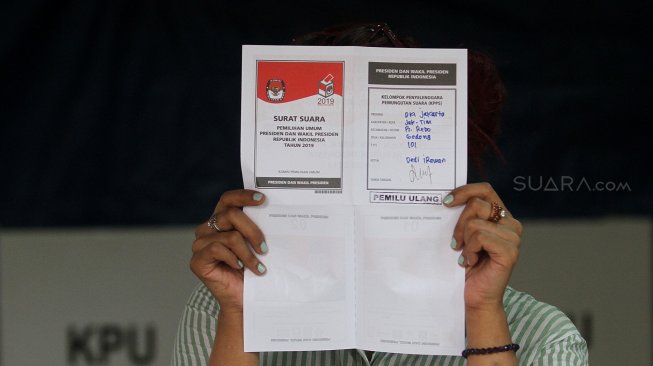 SUARA.com
2019
SURAT SUARA
PEMILIHAN UMUM
PRESIDEN DAN WAKIL PRESIDEN
REPUBLIK INDONESIA
TAHUN 2019
KOMISI PEMILIHAN UMUM
PRESIDEN DAN WAKIL PRESIDEN
PRESIDEN DAN WAKIL PRESIDEN
REPUBLIK INDONESIA
KELOMPOK PENYELENGGARA
PEMUNGUTAN SUARA (KPPS)
PROVINSI DKI Jakarta
Jak-Tim
Ps Rebo
Gedong
TPS 101
KETUA Dedi Irawan
PEMILU ULANG
KPU